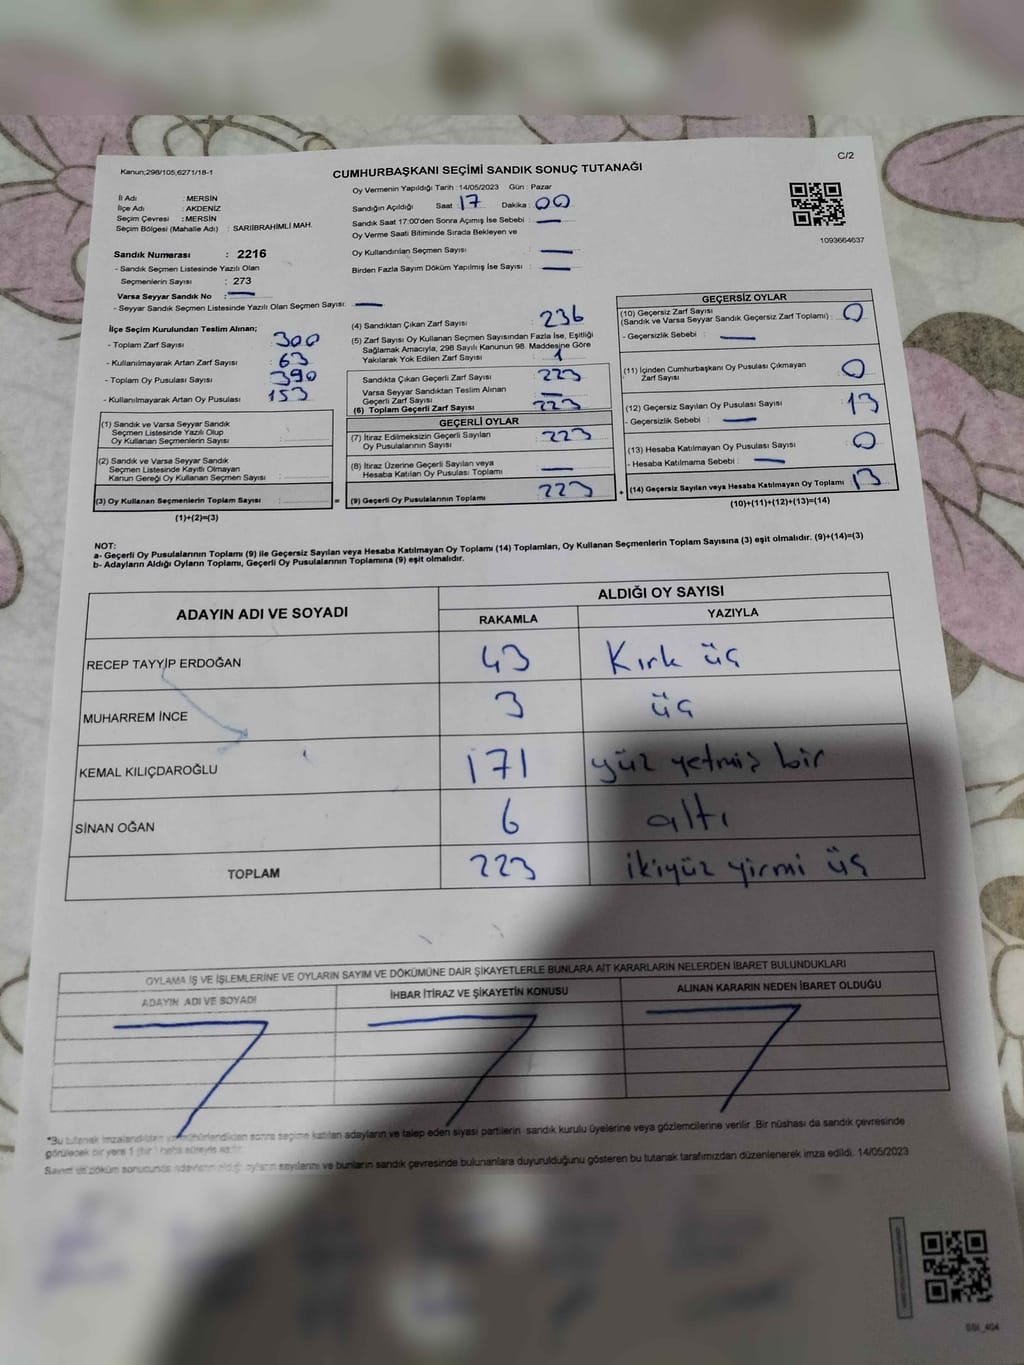 Kanun;298/105,6271/18-1
CUMHURBAŞKANI SEÇİMİ SANDIK SONUÇ TUTANAĞI
C/2
İl Adı : MERSİN
İlçe Adı : AKDENİZ
Seçim Çevresi : MERSİN
Seçim Bölgesi (Mahalle Adı) : SARIİBRAHİMLİ MAH.
Oy Vermenin Yapıldığı Tarih :14/05/2023 Gün : Pazar
Sandığın Açıldığı Saat : 17 Dakika : 00
Sandık Saat 17:00'den Sonra Açımış İse Sebebi : —
Oy Verme Saati Bitiminde Sırada Bekleyen ve
Oy Kullandırılan Seçmen Sayısı —
Birden Fazla Sayım Döküm Yapılmış İse Sayısı : —
1093664637
Sandık Numarası : 2216
- Sandık Seçmen Listesinde Yazılı Olan
Seçmenlerin Sayısı : 273
Varsa Seyyar Sandık No : —
- Seyyar Sandık Seçmen Listesinde Yazılı Olan Seçmen Sayısı: —
İlçe Seçim Kurulundan Teslim Alınan;
- Toplam Zarf Sayısı : 300
- Kullanılmayarak Artan Zarf Sayısı : 63
- Toplam Oy Pusulası Sayısı : 390
- Kullanılmayarak Artan Oy Pusulası : 153
(1) Sandık ve Varsa Seyyar Sandık
Seçmen Listesinde Yazılı Olup
Oy Kullanan Seçmenlerin Sayısı :
(2) Sandık ve Varsa Seyyar Sandık
Seçmen Listesinde Kayıtlı Olmayan
Kanun Gereği Oy Kullanan Seçmen Sayısı :
(3) Oy Kullanan Seçmenlerin Toplam Sayısı : =
(1)+(2)=(3)
(4) Sandıktan Çıkan Zarf Sayısı : 236
(5) Zarf Sayısı Oy Kullanan Seçmen Sayısından Fazla İse, Eşitliği
Sağlamak Amacıyla, 298 Sayılı Kanunun 98. Maddesine Göre
Yakılarak Yok Edilen Zarf Sayısı : 1
Sandıkta Çıkan Geçerli Zarf Sayısı : 223
Varsa Seyyar Sandıktan Teslim Alınan
Geçerli Zarf Sayısı : —
(6) Toplam Geçerli Zarf Sayısı : 223
GEÇERLİ OYLAR
(7) İtiraz Edilmeksizin Geçerli Sayılan
Oy Pusulalarının Sayısı : 223
(8) İtiraz Üzerine Geçerli Sayılan veya
Hesaba Katılan Oy Pusulası Toplamı : —
(9) Geçerli Oy Pusulalarının Toplamı : 223 +
GEÇERSİZ OYLAR
(10) Geçersiz Zarf Sayısı
(Sandık ve Varsa Seyyar Sandık Geçersiz Zarf Toplamı) : 0
- Geçersizlik Sebebi : —
(11) İçinden Cumhurbaşkanı Oy Pusulası Çıkmayan
Zarf Sayısı : 0
(12) Geçersiz Sayılan Oy Pusulası Sayısı : 13
- Geçersizlik Sebebi : —
(13) Hesaba Katılmayan Oy Pusulası Sayısı : 0
- Hesaba Katılmama Sebebi : —
(14) Geçersiz Sayılan veya Hesaba Katılmayan Oy Toplamı : 13
(10)+(11)+(12)+(13)=(14)
NOT:
a- Geçerli Oy Pusulalarının Toplamı (9) ile Geçersiz Sayılan veya Hesaba Katılmayan Oy Toplamı (14) Toplamları, Oy Kullanan Seçmenlerin Toplam Sayısına (3) eşit olmalıdır. (9)+(14)=(3)
b- Adayların Aldığı Oyların Toplamı, Geçerli Oy Pusulalarının Toplamına (9) eşit olmalıdır.
ADAYIN ADI VE SOYADI
ALDIĞI OY SAYISI
RAKAMLA YAZIYLA
RECEP TAYYİP ERDOĞAN 43 Kırk üç
MUHARREM İNCE 3 üç
KEMAL KILIÇDAROĞLU 171 yüz yetmiş bir
SİNAN OĞAN 6 altı
TOPLAM 223 ikiyüz yirmi üç
OYLAMA İŞ VE İŞLEMLERİNE VE OYLARIN SAYIM VE DÖKÜMÜNE DAİR ŞİKAYETLERLE BUNLARA AİT KARARLARIN NELERDEN İBARET BULUNDUKLARI
ADAYIN ADI VE SOYADI İHBAR İTİRAZ VE ŞİKAYETİN KONUSU ALINAN KARARIN NEDEN İBARET OLDUĞU
*Bu tutanak imzalandıktan ve mühürlendikten sonra seçime katılan adayların ve talep eden siyasi partilerin sandık kurulu üyelerine veya gözlemcilerine verilir .Bir nüshası da sandık çevresinde
görülecek bir yere 1 (bir) hafta süreyle asılır.
Sayım ve döküm sonucunda adayların aldığı oyların sayılarını ve bunların sandık çevresinde bulunanlara duyurulduğunu gösteren bu tutanak tarafımızdan düzenlenerek imza edildi. 14/05/2023